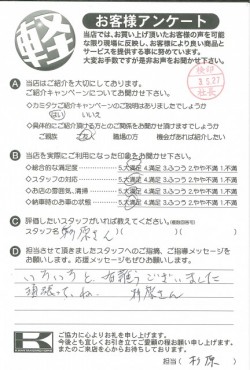 軽
お客様アンケート
当店では、お買い上げ頂いたお客様の声を可能
な限り現場に反映し、お客様により良い商品と
サービスを提供する事に努めています。
大変お手数ですが是非お声をお聞かせ下さい。
検印
3.5.27
社長
A 当店はご紹介を大切にしております。
ご紹介キャンペーンについてお聞かせ下さい。
◇カミタケご紹介キャンペーンのご説明はありましたでしょうか
はい いいえ
◇具体的にご紹介頂ける方とのご関係をお聞かせ頂けますでしょうか
ご親族 ご友人 職場の方 機会があれば紹介したい
B 当店を実際にご利用になった印象をお聞かせ下さい。
◇総合的な満足度 5.大満足 4.満足 3.ふつう 2.やや不満 1.不満
◇スタッフの対応 5.大満足 4.満足 3.ふつう 2.やや不満 1.不満
◇お店の雰囲気、清掃 5.大満足 4.満足 3.ふつう 2.やや不満 1.不満
◇納車時のお車の状態 5.大満足 4.満足 3.ふつう 2.やや不満 1.不満
C 評価したいスタッフがいれば教えてください。(複数回答可)
スタッフ名( 杉原さん )( )( )
D 担当させて頂きましたスタッフへのご指摘、ご指導メッセージを
お願いします。応援メッセージもぜひお願いします。
いろいろと 有難うございました
頑張ってね. 杉原さん
K
ご協力に心よりお礼を申し上げます。
今後とも宜しくお引き立てご愛顧の程お願い申し上げます。
またのご来店を心からお待ちしております。
担当( 杉原 )